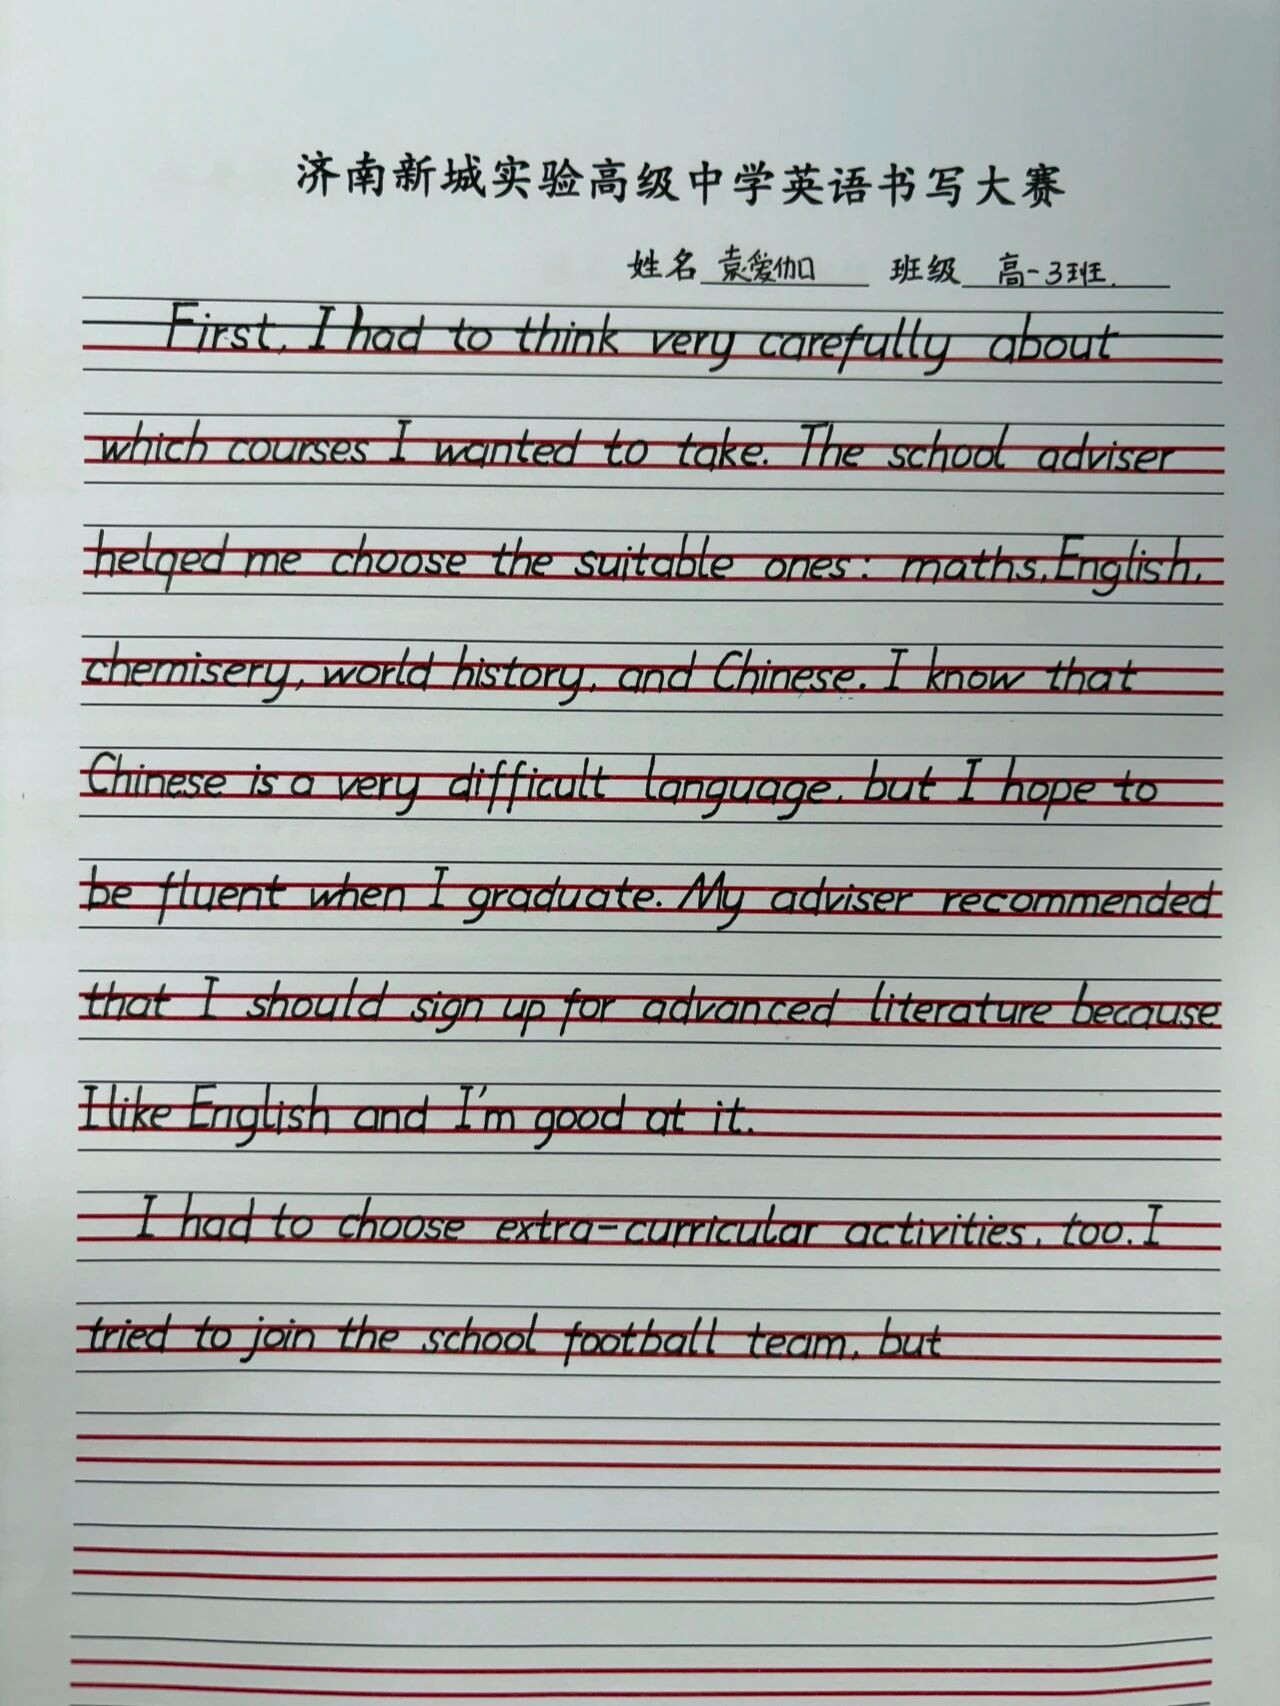 济南新城实验高级中学英语书写大赛
姓名 袁爱伽 班级 高一3班.
First, I had to think very carefully about
which courses I wanted to take. The school adviser
helqed me choose the suitable ones: maths, English,
chemisery, world history, and Chinese. I know that
Chinese is a very difficult language, but I hope to
be fluent when I graduate. My adviser recommended
that I should sign up for advanced literature because
I like English and I'm good at it.
I had to choose extra-curricular activities, too. I
tried to join the school football team, but